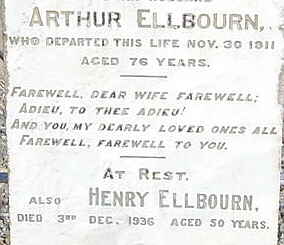 ARTHUR ELLBOURN,
WHO DEPARTED THIS LIFE NOV. 30 1911
AGED 76 YEARS.
FAREWELL, DEAR WIFE FAREWELL;
ADIEU, TO THEE ADIEU!
AND YOU, MY DEARLY LOVED ONES ALL
FAREWELL, FAREWELL TO YOU.
AT REST.
ALSO HENRY ELLBOURN,
DIED 3RD DEC. 1936 AGED 50 YEARS.